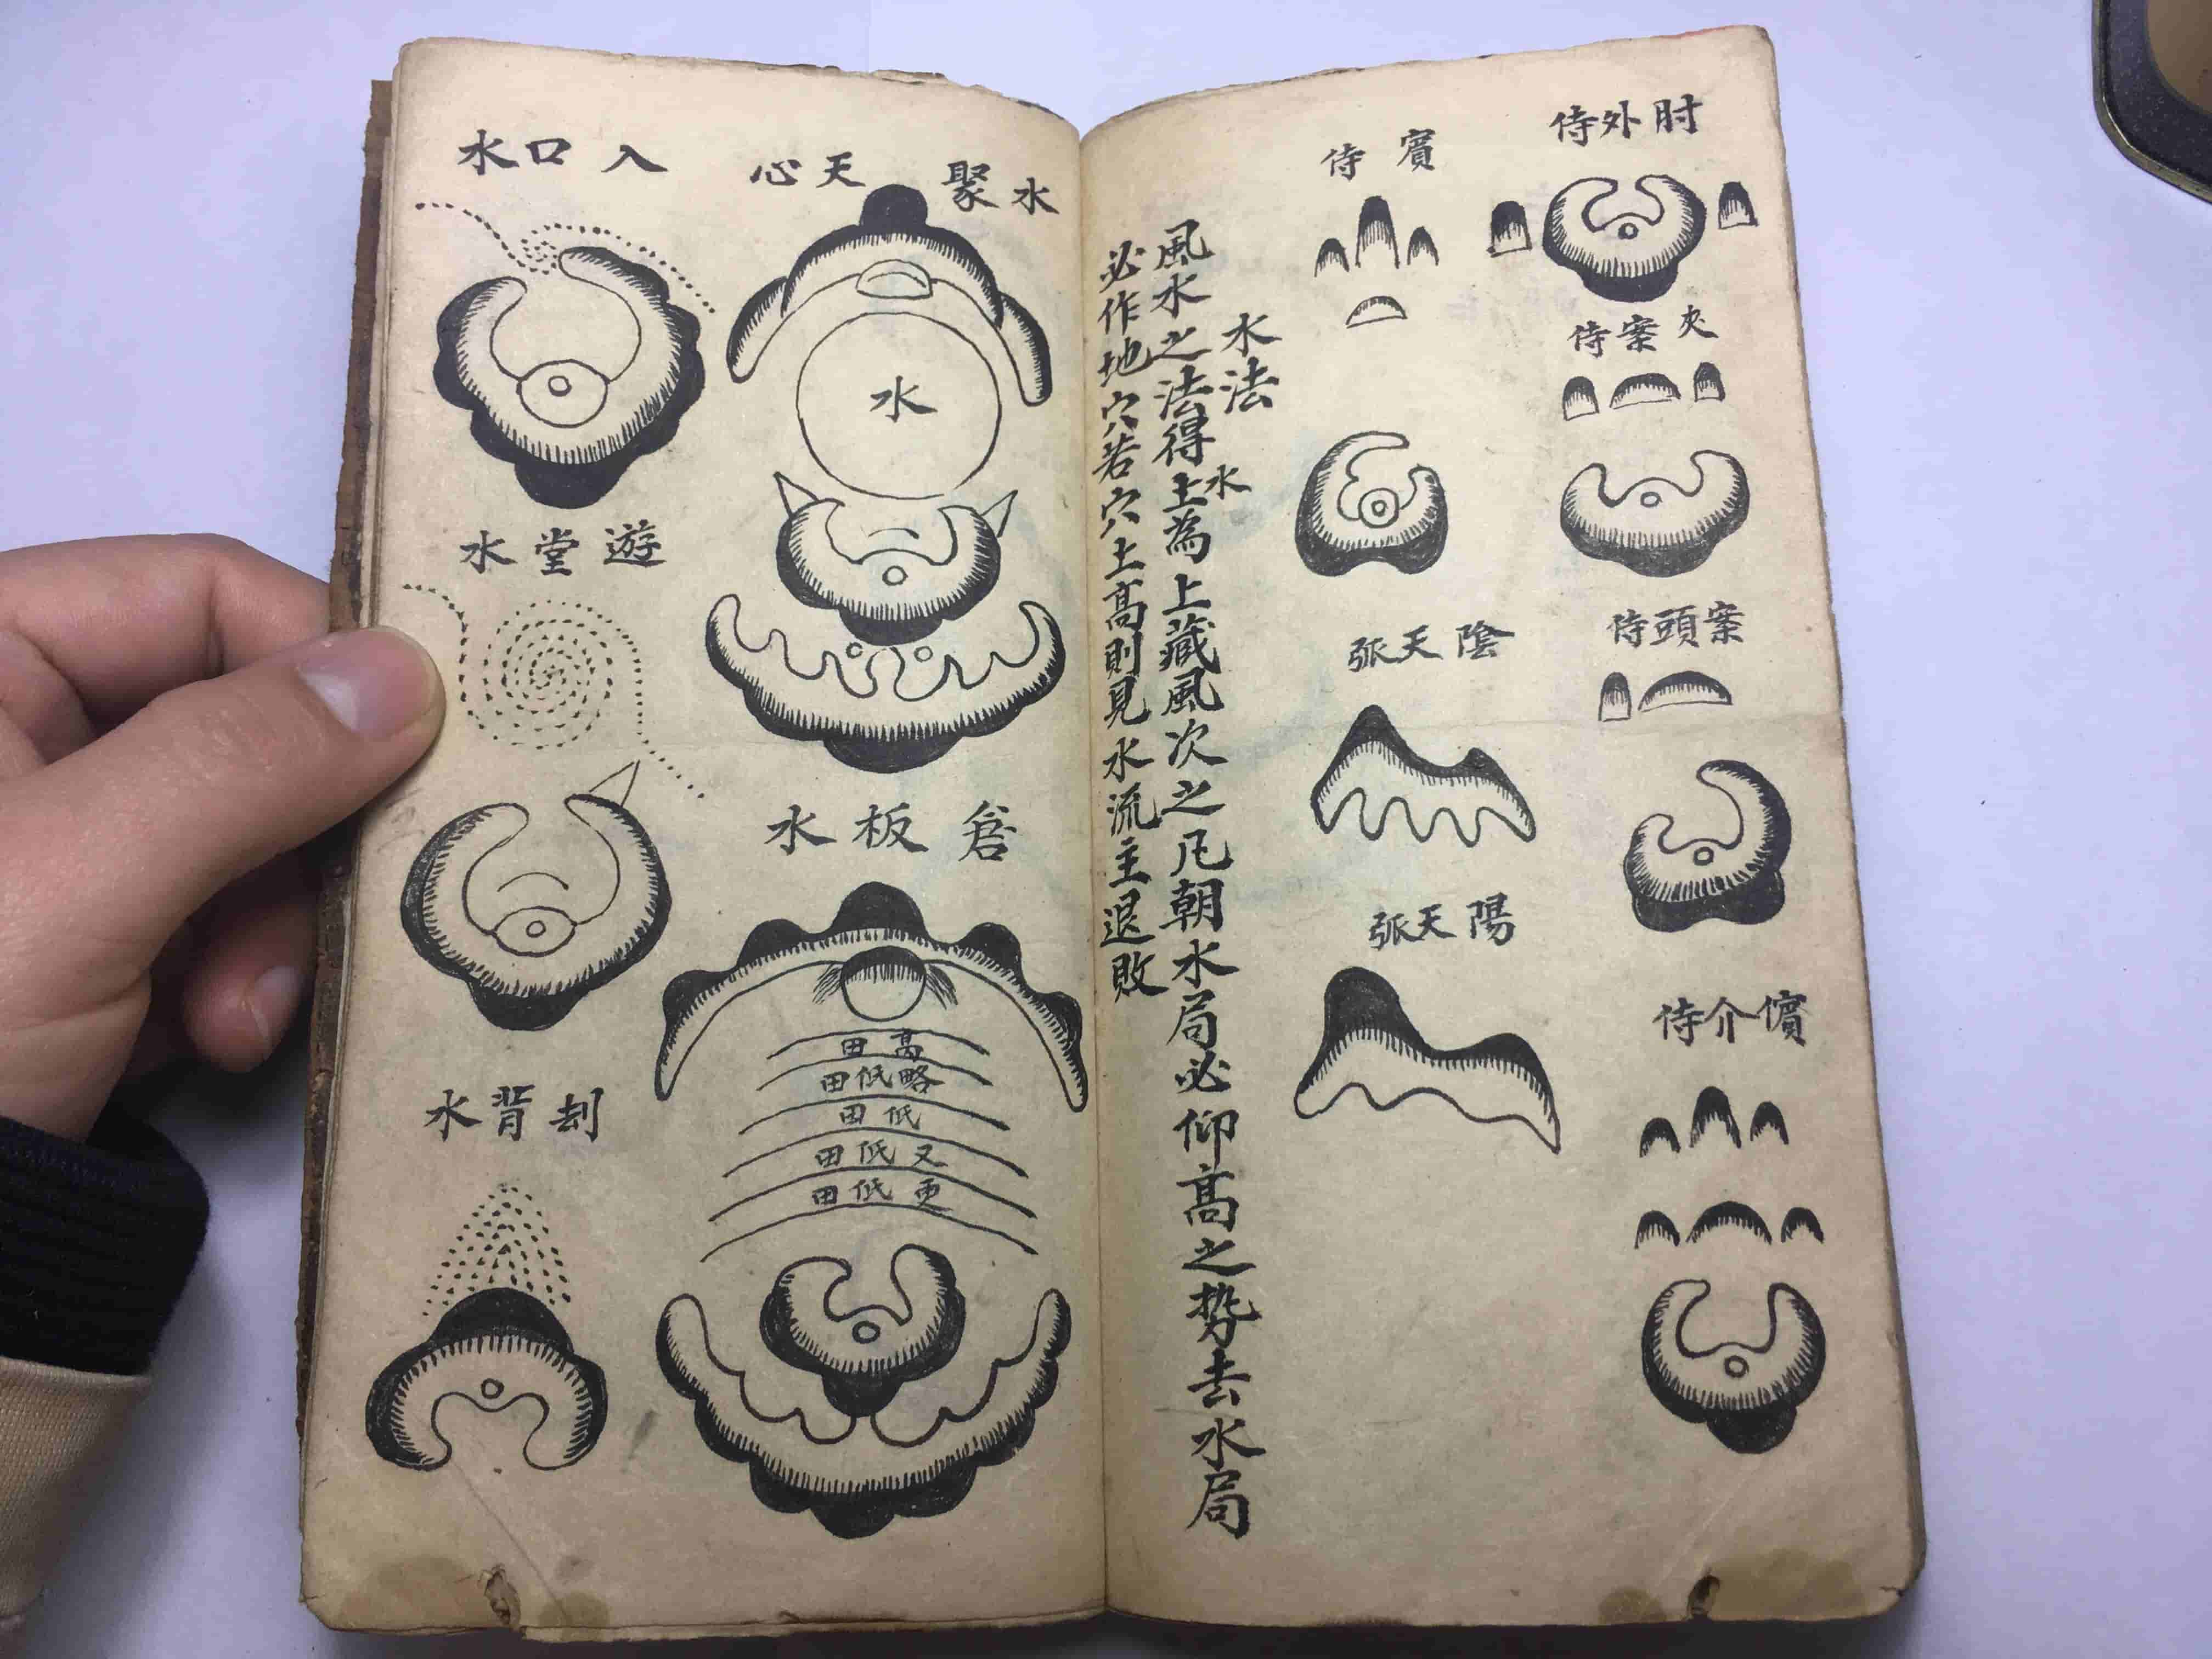 肘外侍
夾案侍
案頭侍
儐介侍
賓侍
陰天張
陽天張
水法
風水之法得水
土為上藏風次之凡朝水局必仰高之勢去水局
必作地穴若穴土高則見水流主退敗
水聚
天心
水
倉板水
高田
略低田
低田
又低田
更低田
入口水
遊堂水
刦背水